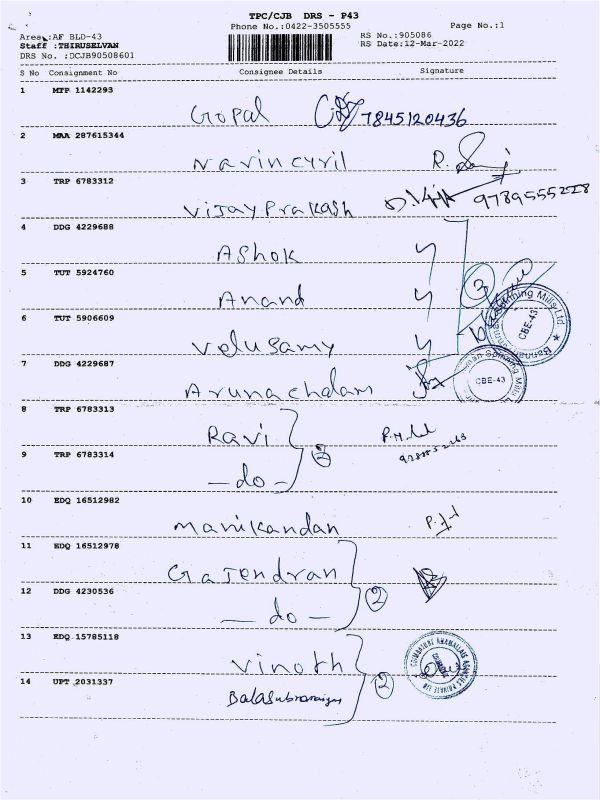 TPC/CJB DRS - P43
Phone No.:0422-3505555 Page No.:1
Area :AF BLD-43 RS No.:905086
Staff :THIRUSELVAN RS Date:12-Mar-2022
DRS No. :DCJB90508601
S No Consignment No Consignee Details Signature
1 MTP 1142293
Gopal 7845120436
2 MAA 287615344
Navincyril R.
3 TRP 6783312
VijayPrakash 9789555228
4 DDG 4229688
Ashok
5 TUT 5924760
Anand 3
6 TUT 5906609
Velusamy
CBE-43
Spinning Mills Ltd.
7 DDG 4229687
Arunachalam
CBE-43
8 TRP 6783313
Ravi
9 TRP 6783314 2
-do-
10 EDQ 16512982
Manikandan
11 EDQ 16512978
Gajendran
12 DDG 4230536 2
-do-
13 EDQ 15785118
Vinoth
14 UPT 2031337 2